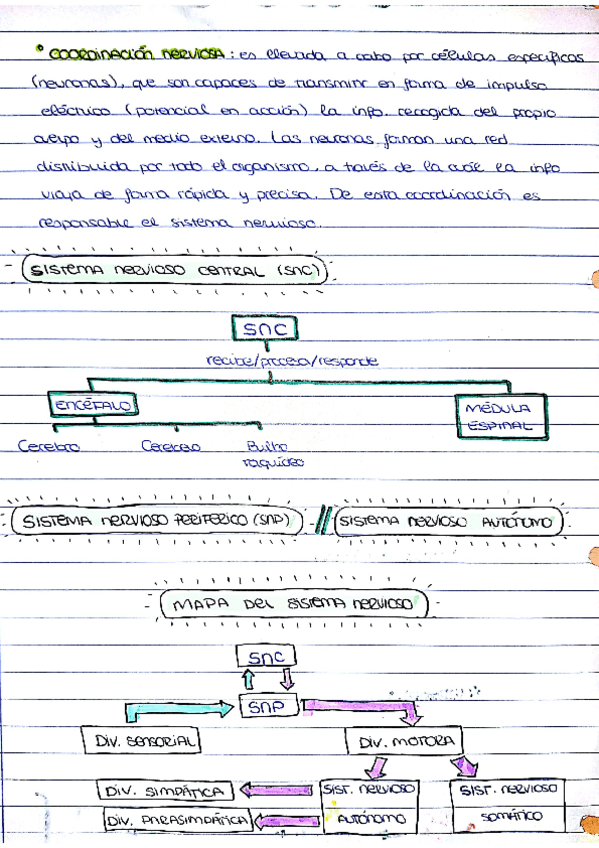 ° COORDINACIÓN NERVIOSA: es llevada a cabo por células específicas
(neuronas), que son capaces de transmitir en forma de impulso
eléctrico (potencial en acción) la info. recogida del propio
cuerpo y del medio externo. Las neuronas forman una red
distribuida por todo el organismo, a través de la cual la info
viaja de forma rápida y precisa. De esta coordinación es
responsable el sistema nervioso.
SISTEMA NERVIOSO CENTRAL (SNC)
SNC
recibe/procesa/responde
ENCÉFALO
MÉDULA
ESPINAL
Cerebro Cerebelo Bulbo
raquídeo
SISTEMA NERVIOSO PERIFERICO (SNP) // SISTEMA NERVIOSO AUTÓNOMO
MAPA DEL SISTEMA NERVIOSO
SNC
SNP
DIV. SENSORIAL DIV. MOTORA
DIV. SIMPÁTICA SIST. NERVIOSO SIST. NERVIOSO
DIV. PARASIMPÁTICA AUTÓNOMO SOMÁTICO